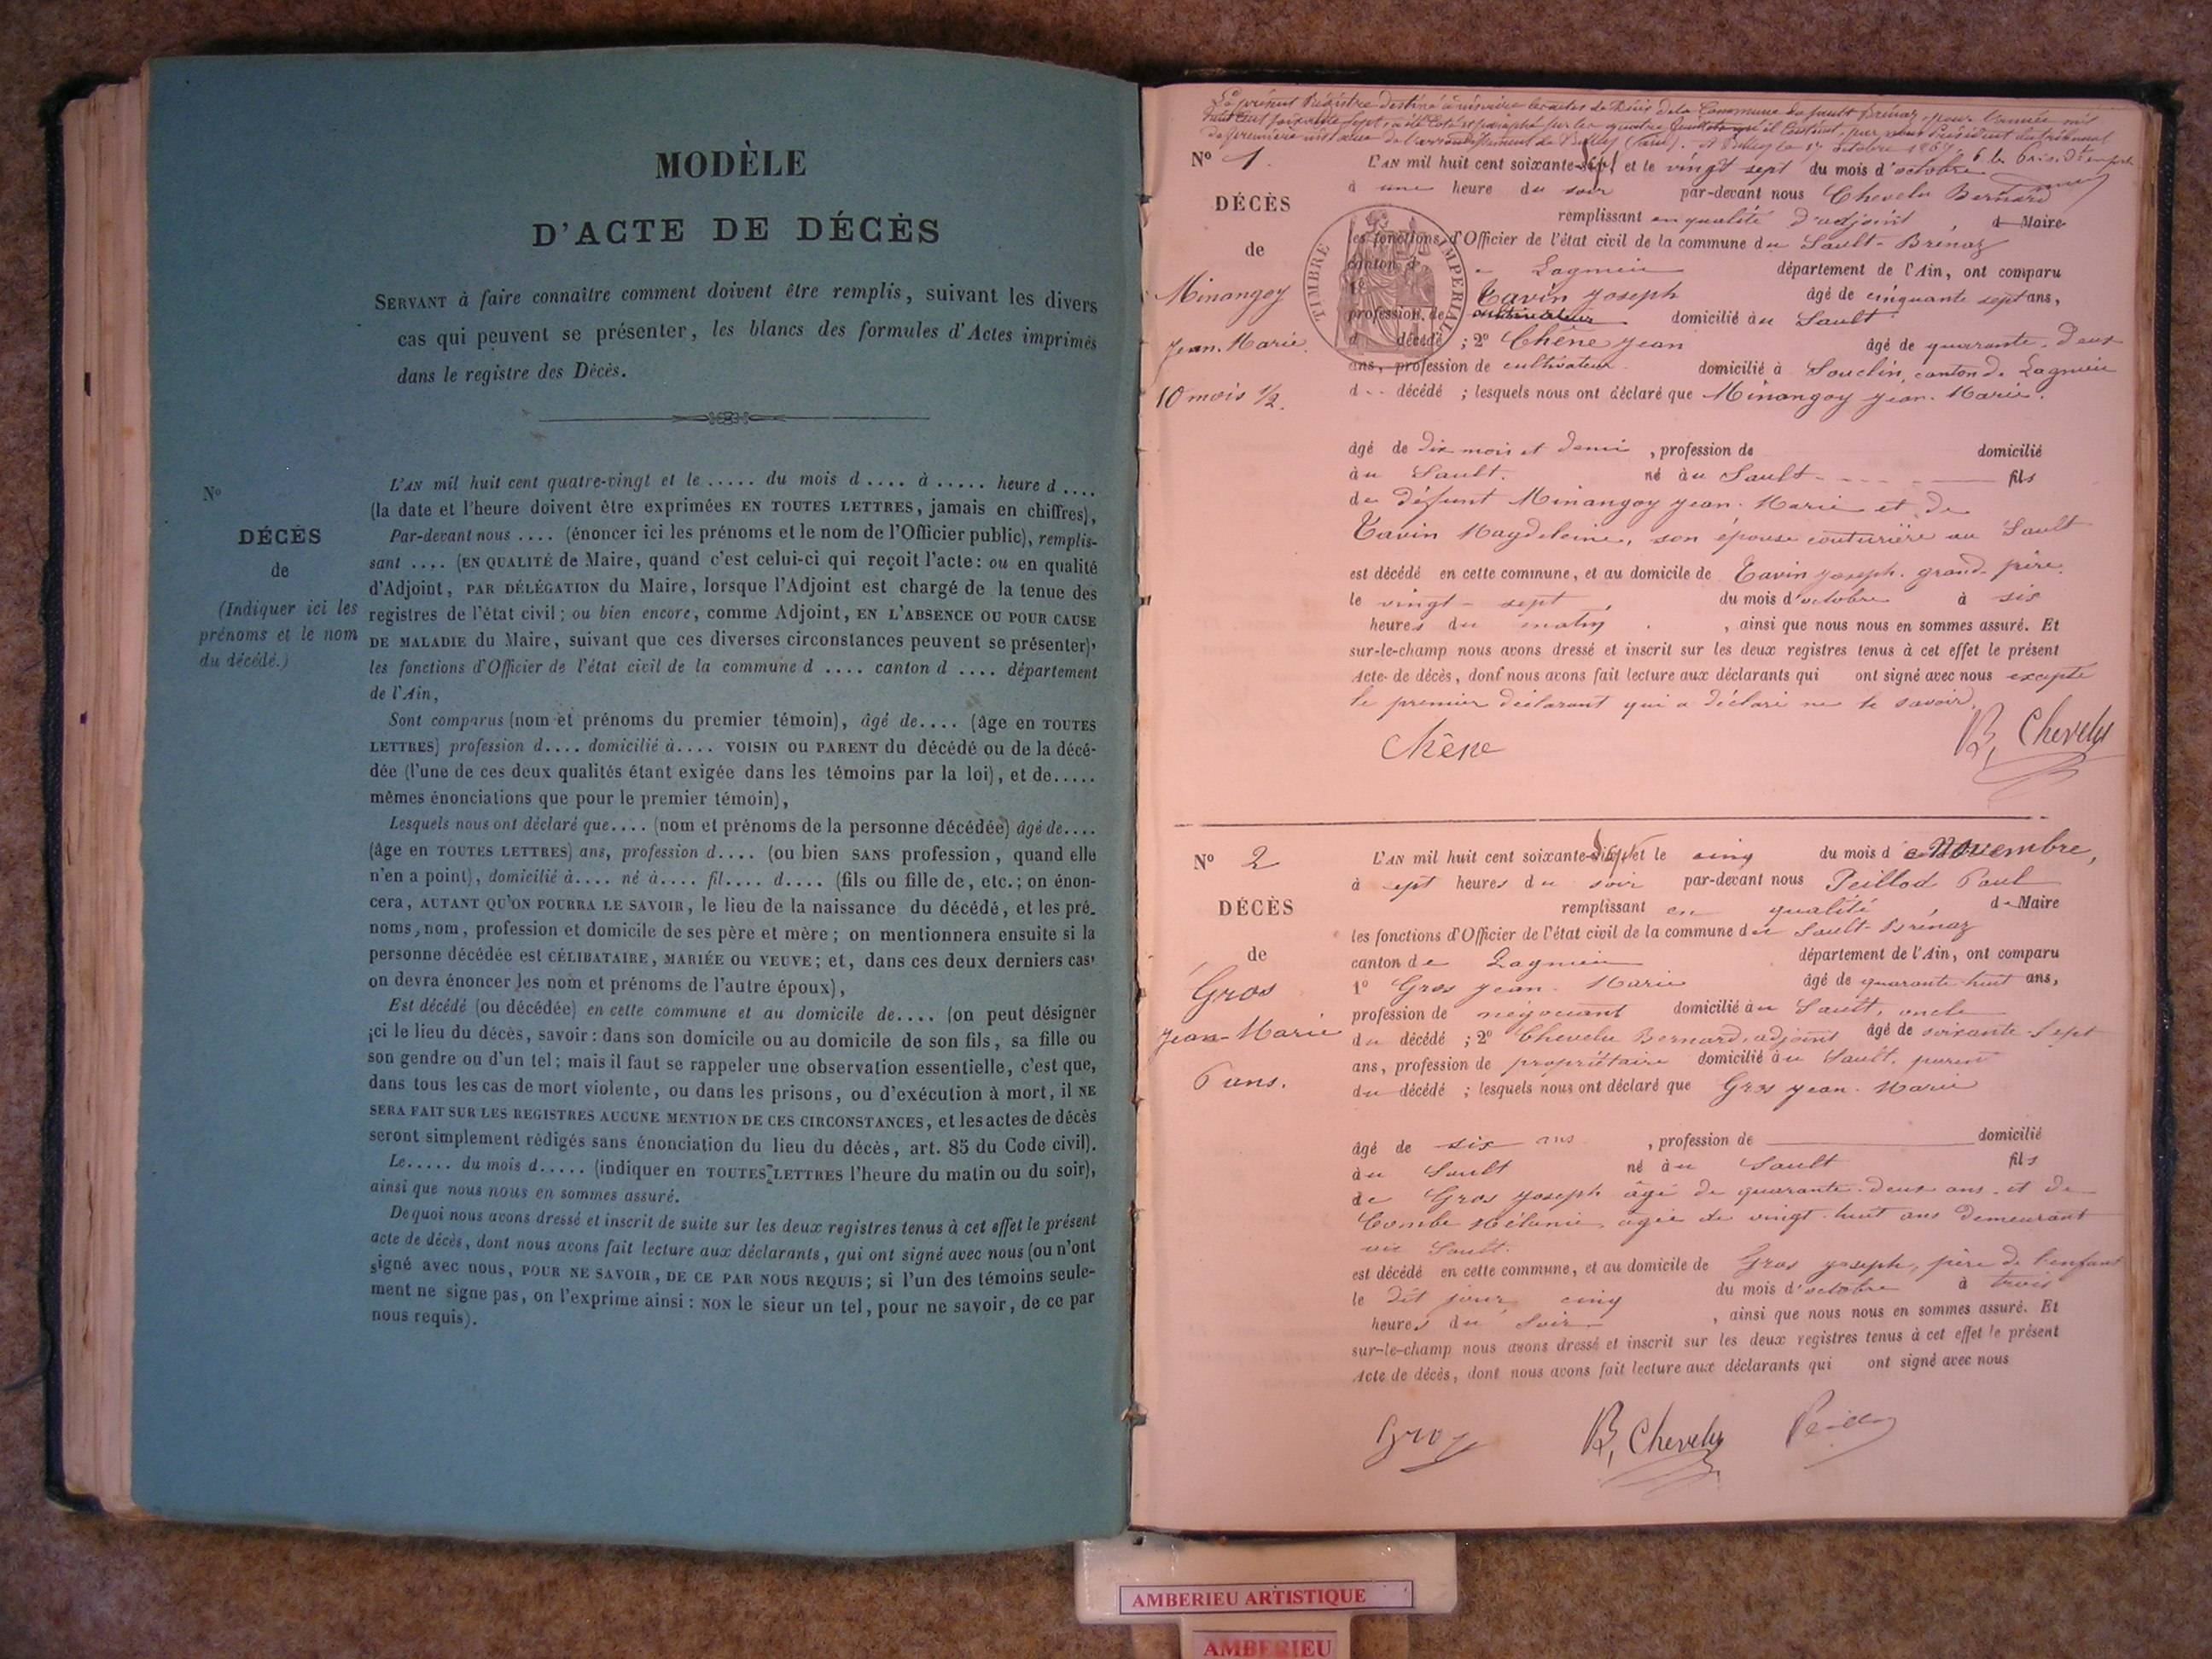 MODÈLE
D'ACTE DE DÉCÈS
SERVANT à faire connaître comment doivent être remplis, suivant les divers
cas qui peuvent se présenter, les blancs des formules d'Actes imprimés
dans le registre des Décès.
No
DÉCÈS
de
(Indiquer ici les
prénoms et le nom
du décédé.)
L'AN mil huit cent quatre-vingt et le ..... du mois d .... à ..... heure d ....
(la date et l'heure doivent être exprimées EN TOUTES LETTRES, jamais en chiffres),
Par-devant nous .... (énoncer ici les prénoms et le nom de l'Officier public), remplis-
sant .... (EN QUALITÉ de Maire, quand c'est celui-ci qui reçoit l'acte: ou en qualité
d'Adjoint, PAR DÉLÉGATION du Maire, lorsque l'Adjoint est chargé de la tenue des
registres de l'état civil; ou bien encore, comme Adjoint, EN L'ABSENCE OU POUR CAUSE
DE MALADIE du Maire, suivant que ces diverses circonstances peuvent se présenter),
les fonctions d'Officier de l'état civil de la commune d .... canton d .... département
de l'Ain,
Sont comparus (nom et prénoms du premier témoin), âgé de.... (âge en TOUTES
LETTRES) profession d.... domicilié à.... VOISIN OU PARENT du décédé ou de la décé-
dée (l'une de ces deux qualités étant exigée dans les témoins par la loi), et de.....
mêmes énonciations que pour le premier témoin),
Lesquels nous ont déclaré que.... (nom et prénoms de la personne décédée) âgé de....
(âge en TOUTES LETTRES) ans, profession d.... (ou bien SANS profession, quand elle
n'en a point), domicilié à.... né à.... fil.... d.... (fils ou fille de, etc.; on énon-
cera, AUTANT QU'ON POURRA LE SAVOIR, le lieu de la naissance du décédé, et les pré-
noms, nom, profession et domicile de ses père et mère; on mentionnera ensuite si la
personne décédée est CÉLIBATAIRE, MARIÉE OU VEUVE; et, dans ces deux derniers cas,
on devra énoncer les nom et prénoms de l'autre époux),
Est décédé (ou décédée) en cette commune et au domicile de.... (on peut désigner
ici le lieu du décès, savoir: dans son domicile ou au domicile de son fils, sa fille ou
son gendre ou d'un tel; mais il faut se rappeler une observation essentielle, c'est que,
dans tous les cas de mort violente, ou dans les prisons, ou d'exécution à mort, il NE
SERA FAIT SUR LES REGISTRES AUCUNE MENTION DE CES CIRCONSTANCES, et les actes de décès
seront simplement rédigés sans énonciation du lieu du décès, art. 85 du Code civil).
Le..... du mois d..... (indiquer en TOUTES LETTRES l'heure du matin ou du soir),
ainsi que nous nous en sommes assuré.
De quoi nous avons dressé et inscrit de suite sur les deux registres tenus à cet effet le présent
acte de décès, dont nous avons fait lecture aux déclarants, qui ont signé avec nous (ou n'ont
signé avec nous, POUR NE SAVOIR, DE CE PAR NOUS REQUIS; si l'un des témoins seule-
ment ne signe pas, on l'exprime ainsi: NON le sieur un tel, pour ne savoir, de ce par
nous requis).
Le présent Registre destiné à inscrire les actes de Décès de la Commune du Sault Brénaz, pour l'année mil
huit cent soixante sept, a été coté et paraphé sur les quatre feuillets qu'il contient, par nous Président du tribunal
de première instance de l'arrondissement de Belley (Ain). A Belley le 17 octobre 1867.
No 1.
DÉCÈS
de
Minangoy
Jean-Marie.
10 mois 1/2.
TIMBRE IMPERIAL
L'AN mil huit cent soixante-sept et le vingt sept du mois d'octobre
à une heure du soir par-devant nous Chevelu Bernard
remplissant en qualité d'adjoint d Maire
les fonctions d'Officier de l'état civil de la commune du Sault-Brénaz
canton de Lagnieu département de l'Ain, ont comparu
1° Tavin Joseph âgé de cinquante sept ans,
profession de cultivateur domicilié au Sault
d décédé ; 2° Chêne Jean âgé de quarante-deux
ans, profession de cultivateur domicilié à Souclin, canton de Lagnieu
d.. décédé ; lesquels nous ont déclaré que Minangoy Jean-Marie.
âgé de dix mois et demi , profession de domicilié
au Sault. né au Sault - - - - fils
de défunt Minangoy Jean-Marie et de
Tavin Magdeleine, son épouse couturière au Sault
est décédé en cette commune, et au domicile de Tavin Joseph. grand-père.
le vingt-sept du mois d'octobre à six
heures du matin , ainsi que nous nous en sommes assuré. Et
sur-le-champ nous avons dressé et inscrit sur les deux registres tenus à cet effet le présent
Acte de décès, dont nous avons fait lecture aux déclarants qui ont signé avec nous excepté
le premier déclarant qui a déclaré ne le savoir.
Chêne B. Chevelu
No 2
DÉCÈS
de
Gros
Jean-Marie
6 ans.
L'AN mil huit cent soixante-sept et le cinq du mois de Novembre,
à sept heures du soir par-devant nous Peillod Paul
remplissant en qualité de Maire
les fonctions d'Officier de l'état civil de la commune du Sault-Brénaz
canton de Lagnieu département de l'Ain, ont comparu
1° Gros Jean-Marie âgé de quarante-huit ans,
profession de négociant domicilié au Sault, oncle
du décédé ; 2° Chevelu Bernard, adjoint âgé de soixante-sept
ans, profession de propriétaire domicilié au Sault, parent
du décédé ; lesquels nous ont déclaré que Gros Jean-Marie
âgé de six ans , profession de domicilié
au Sault né au Sault fils
de Gros Joseph âgé de quarante-deux ans et de
Combe Mélanie, âgée de vingt-huit ans demeurant
au Sault.
est décédé en cette commune, et au domicile de Gros Joseph, père de l'enfant
le dit jour cinq du mois d'octobre à trois
heures du soir , ainsi que nous nous en sommes assuré. Et
sur-le-champ nous avons dressé et inscrit sur les deux registres tenus à cet effet le présent
Acte de décès, dont nous avons fait lecture aux déclarants qui ont signé avec nous
Gros B. Chevelu Peillod
AMBERIEU ARTISTIQUE
AMBERIEU